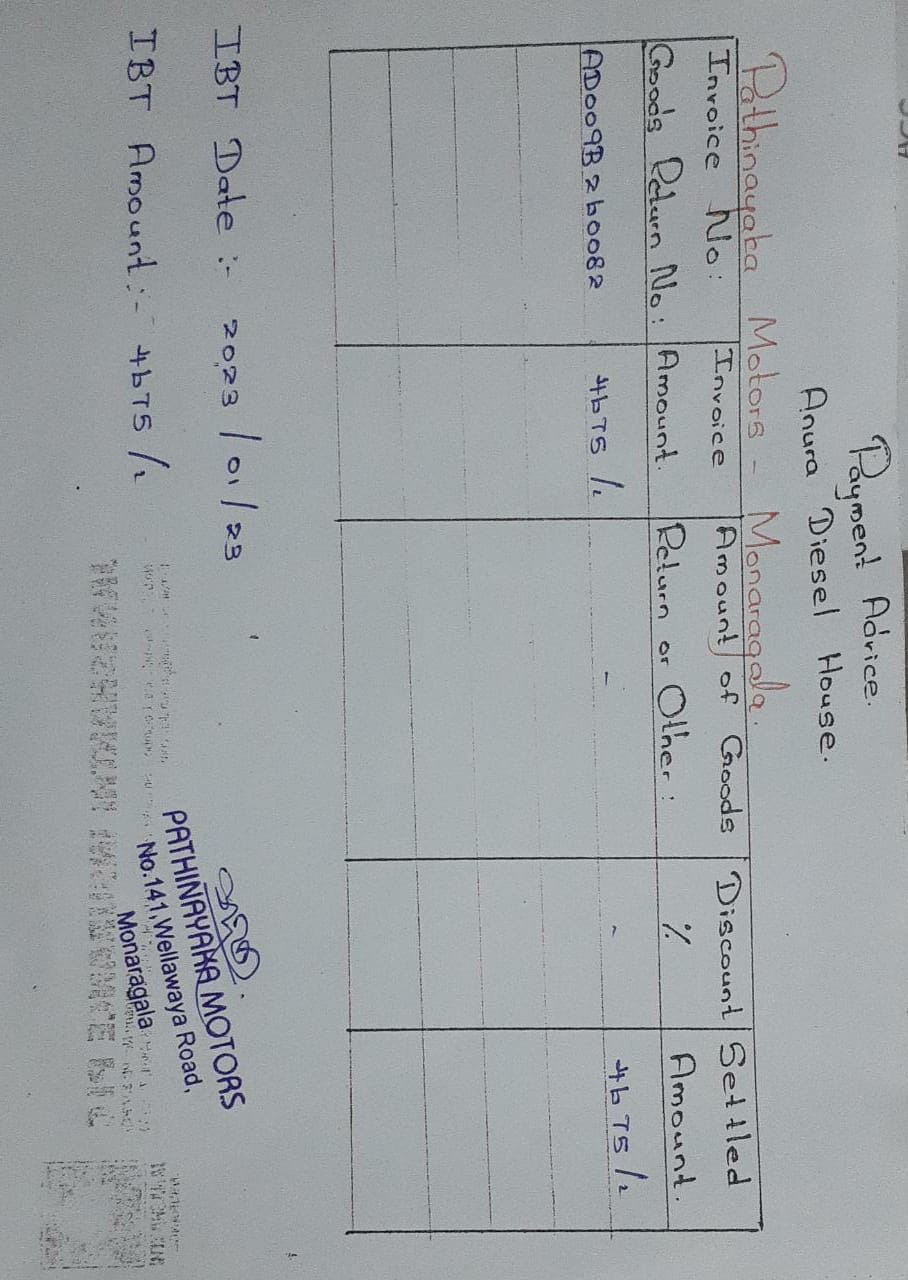 Payment Advice.
Anura Diesel House.
Pathinayaka Motors - Monaragala.
Invoice No: Invoice Amount of Goods Discount Settled
Goods Return No: Amount. Return or Other: % Amount.
AD009B2b0082 4b75/2 - - 4b75/2
IBT Date :- 2023/01/23
IBT Amount :- 4b75/2
PATHINAYAKA MOTORS
No.141,Wellawaya Road,
Monaragala